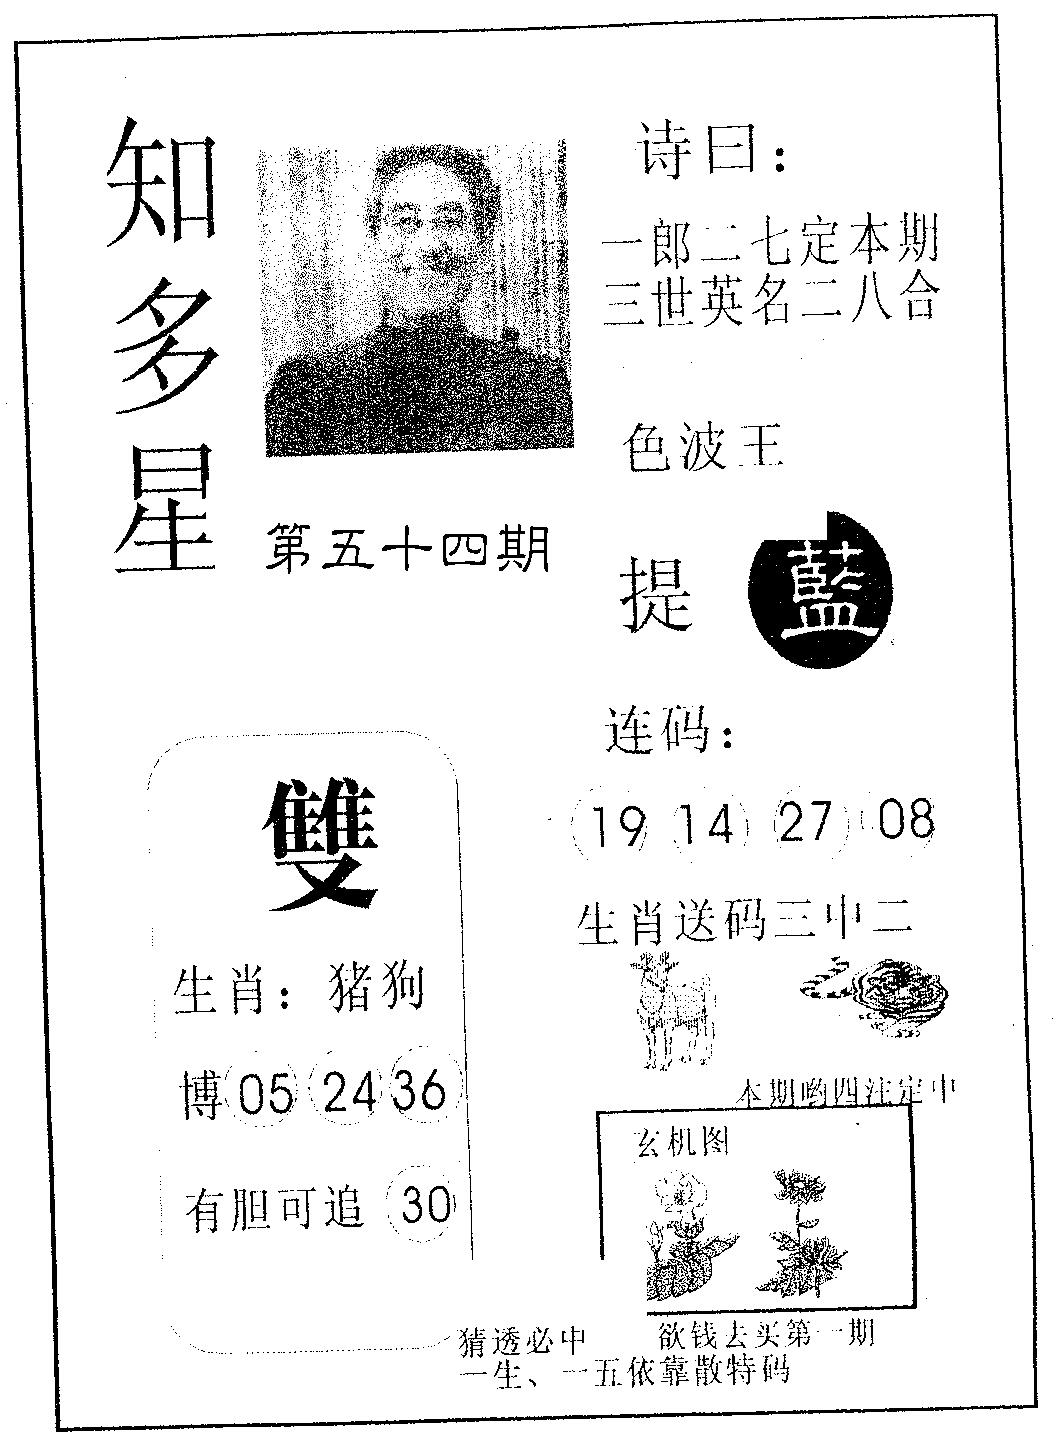 知多星
第五十四期
诗曰：
一郎二七定本期
三世英名二八合
色波王
提 藍
连码：
19 14 27 08
生肖送码三中二
本期哟四注定中
玄机图
雙
生肖：猪狗
博 05 24 36
有胆可追 30
猜透必中 欲钱去买第一期
一生、一五依靠散特码